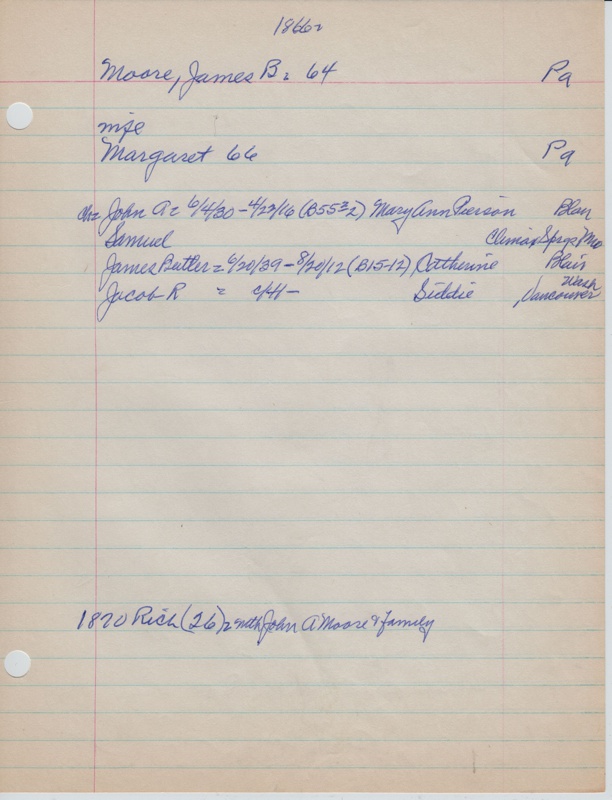 1866=
Moore, James B = 64 Pa
wife
Margaret 66 Pa
ch= John A = 6/4/30 - 4/23/16 (B55 2) Mary Ann Pierson Blair
Samuel Climax Sprgs
James Butler = 6/20/39 - 8/20/12 (B15-12) Catherine Blair
Jacob R = c/41 - Siddie Vancouver Wash
1870 Rich (26) = with John A Moore & family